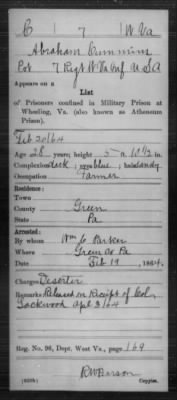 C 7 W. Va
Abraham Cummins
Pvt 7 Regt W Va Inf U S A
Appears on a
List
of Prisoners confined in Military Prison at
Wheeling, Va. (also known as Atheneum
Prison).
Feb 20 1864
Age 28 years; height 5 ft. 10 1/2 in.
Complexion dark; eyes blue; hair sandy
Occupation Farmer
Residence:
Town
County Green
State Pa
Arrested:
By whom Wm C Parker
Where Green Co Pa
Date Feb 19, 1864.
Charges Deserter
Remarks: Released on Receipt of Col.
Lockwood Apl 3/64
Reg. No. 96, Dept. West Va., page 169
Copyist.